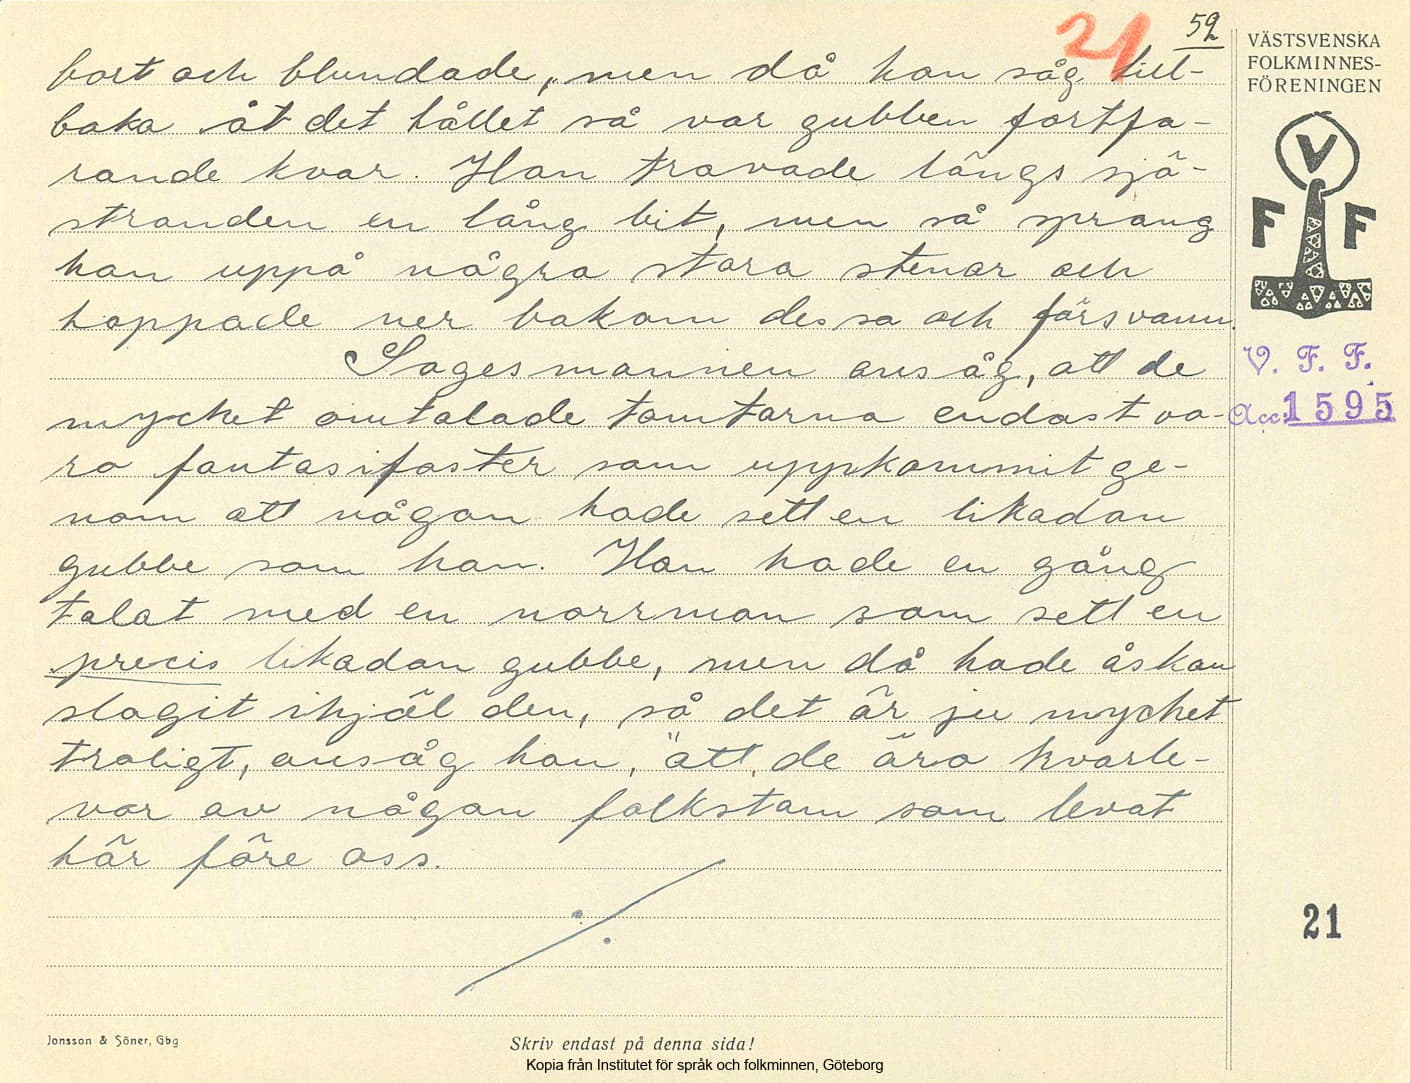 21
52
bort och blundade, men då han såg till-
baka åt det hållet så var gubben fortfa-
rande kvar. Han travade längs sjö-
stranden en lång bit, men så sprang
han uppå några stora stenar och
hoppade ner bakom dessa och försvann.
Sagesmannen ansåg, att de
mycket omtalade tomtarna endast va-
ro fantasifoster som uppkommit ge-
nom att någon hade sett en likadan
gubbe som han. Han hade en gång
talat med en norrman som sett en
precis likadan gubbe, men då hade åskan
slagit ihjäl den, så det är ju mycket
troligt, ansåg han, att de äro kvarle-
vor av någon folkstam som levat
här före oss.
VÄSTSVENSKA
FOLKMINNES-
FÖRENINGEN
V
F F
V. F. F.
Acc. 1595
21
Jonsson & Söner, Gbg
Skriv endast på denna sida!
Kopia från Institutet för språk och folkminnen, Göteborg